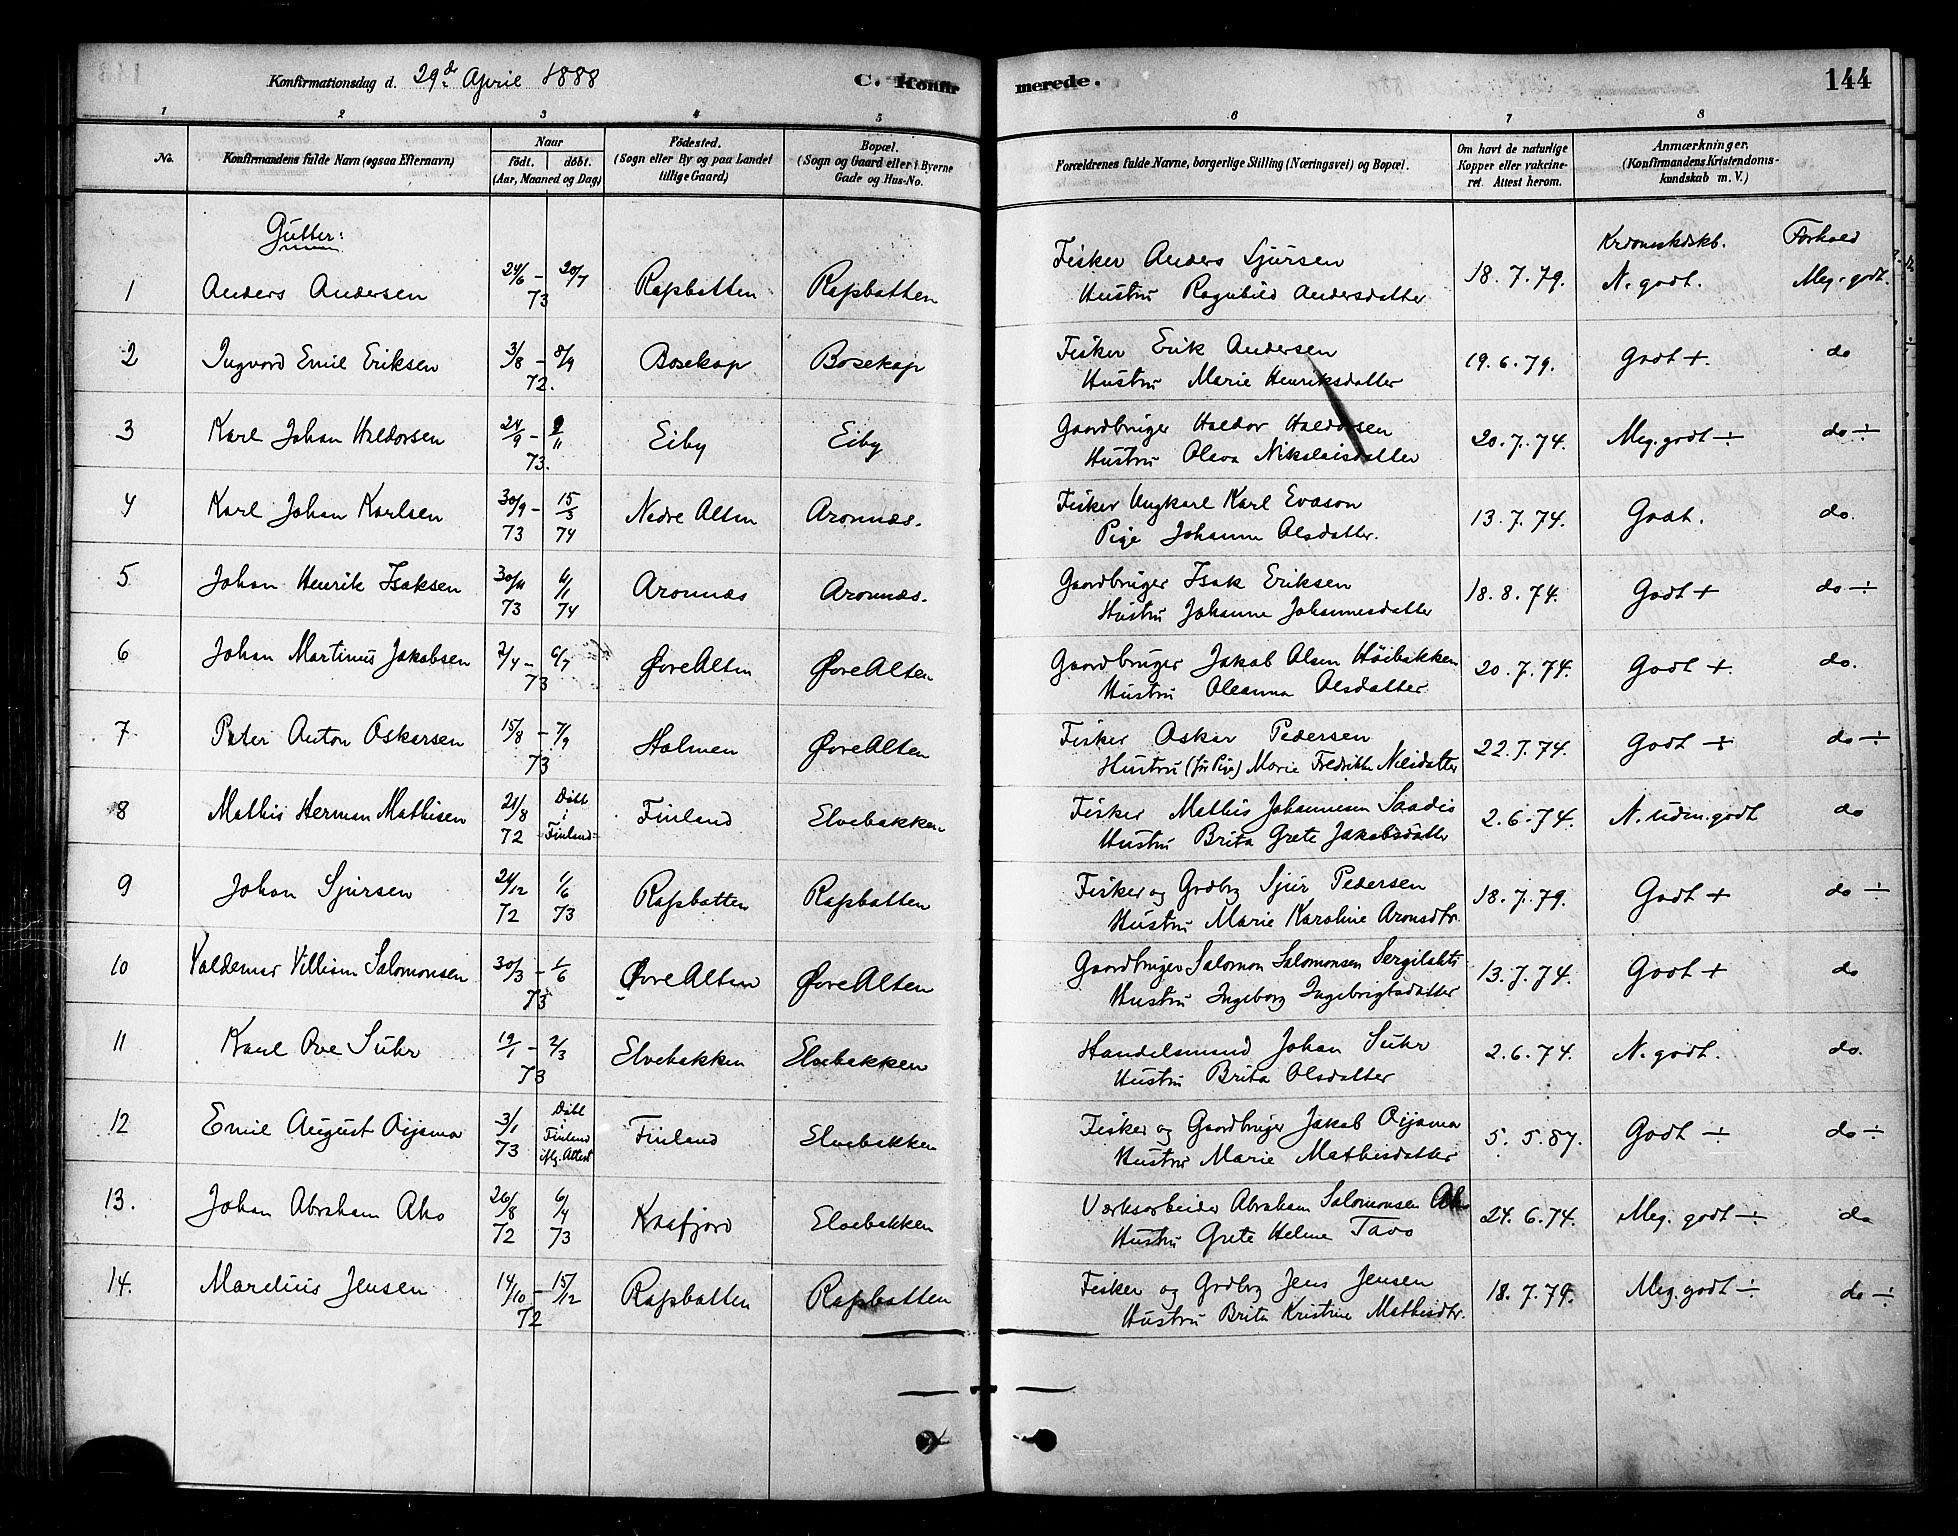 Konfirmationsdag d. 29de April 1888
C. Konfir
merede.
144
1 2 3 4 5 6 7 8
No.
Konfirmandens fulde Navn (ogsaa Efternavn)
Naar
født. døbt.
(Aar, Maaned og Dag)
Fødested.
(Sogn eller By og paa Landet
tillige Gaard)
Bopæl.
(Sogn og Gaard eller i Byerne
Gade og Hus-No.
Forældrenes fulde Navne, borgerlige Stilling (Næringsvei) og Bopæl.
Om havt de naturlige
Kopper eller vakcine-
ret. Attest herom.
Anmærkninger.
(Konfirmandens Kristendoms-
kundskab m. V.)
Gutter:
Krdomskdskb. Forhold
1 Anders Andersen 24/6 - 20/7 73 Rafsbotten Rafsbotten
Fisker Anders Sjursen
Hustru Ragnhild Andersdatter
18.7.79. N. godt. Meg. godt.
2 Ingvard Emil Eriksen 3/8 - 8/9 72. Bosekop Bosekop
Fisker Erik Andersen
Hustru Marie Henriksdatter
19.6.79. Godt + do
3 Karl Johan Haldorsen 24/9 - 2/11 73. Eiby Eiby
Gaardbruger Haldor Haldorsen
Hustru Olava Nikolaisdatter
20.7.74. Meg. godt ÷ do ÷
4 Karl Johan Karlsen 30/9 - 15/3 73 74 Nedre Alten Aronnæs.
Fisker Ungkarl Karl Evason
Pige Johanne Olsdatter.
13.7.74. Godt. do.
5 Johan Henrik Isaksen 30/11 6/1 73 74 Aronnæs Aronnæs.
Gaardbruger Isak Eriksen
Hustru Johanne Johannesdatter
18.8.74. Godt + do ÷
6 Johan Martinus Jakobsen 2/4 - 6/7 73 Øvre Alten Øvre Alten
Gaardbruger Jakob Olsen Høibakken
Hustru Oleanna Olsdatter.
20.7.74. Godt +. do.
7 Peter Anton Oskarsen 15/8 - 7/9 73 Holmen Øvre Alten
Fisker Oskar Pedersen
Hustru (før Pige) Marie Fredrikke Nilsdatter
22.7.74. Godt + do ÷
8 Mathis Herman Mathisen 21/8 72 Døbt i Finland Finland Elvebakken
Fisker Mathis Johannesen Saadio
Hustru Brita Grete Jakobsdatter
2.6.74. N. udm. godt do
9 Johan Sjursen 24/12 1/6 72 73 Rafsbotten Rafsbotten
Fisker og Grdbg Sjur Pedersen
Hustru Marie Karoline Aronsdtr.
18.7.79. Godt + do ÷
10 Valdemar Villiam Salomonsen 30/3 - 1/6 73 Øvre Alten Øvre Alten
Gaardbruger Salomon Salomonsen
Hustru Ingeborg Ingebrigtsdatter
13.7.74. Godt + do
11 Karl Ove Suhr 19/1 - 2/3 73 Elvebakken Elvebakken
Handelsmand Johan Suhr
Hustru Brita Olsdatter
2.6.74. N. godt. do.
12 Emil August Oijama 3/1 73 Døbt i Finland iflg. Attest Finland Elvebakken
Fisker og Gaardbruger Jakob Oijama
Hustru Marie Mathisdatter
5.5.87. Godt ÷ do ÷
13. Johan Abraham Aho 26/8 6/4 72 73 Kaafjord Elvebakken
Værksarbeider Abraham Salomonsen Aho
Hustru Grete Helene Tavo
24.6.74. Meg. godt ÷ do
14. Marelius Jensen 14/10 - 15/12 72 Rafsbotten Rafsbotten
Fisker og Grdbg Jens Jensen
Hustru Brita Kristine Mathisdtr.
18.7.79. Meg. godt ÷ do ÷